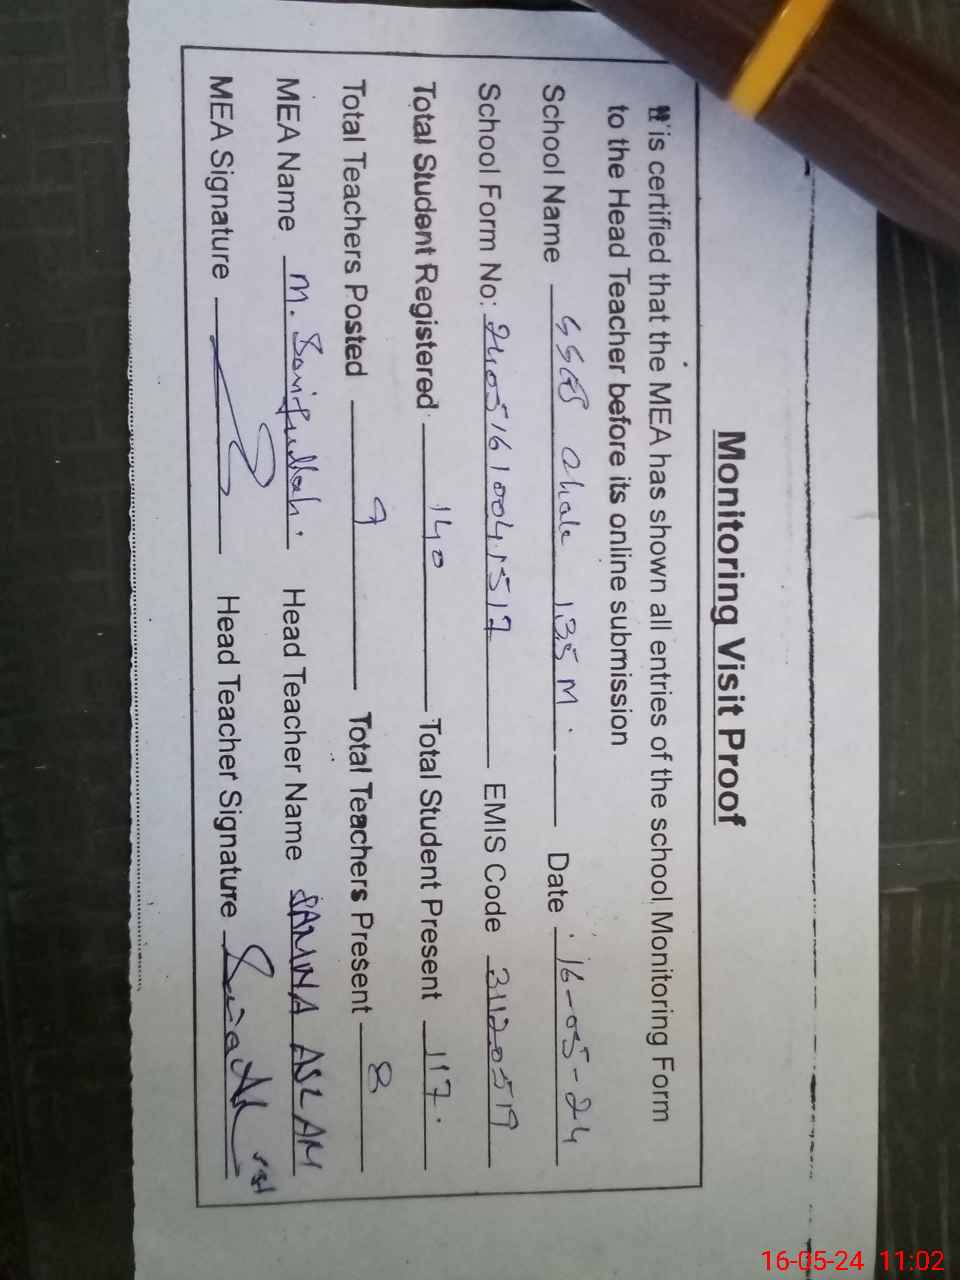 Monitoring Visit Proof
It is certified that the MEA has shown all entries of the school Monitoring Form
to the Head Teacher before its online submission
School Name 135 M. Date 16-05-24
School Form No: EMIS Code
Total Student Registered 140 Total Student Present 117
Total Teachers Posted 9 Total Teachers Present 8
MEA Name M. Head Teacher Name SAMINA ASLAM
MEA Signature Head Teacher Signature
16-05-24 11:02